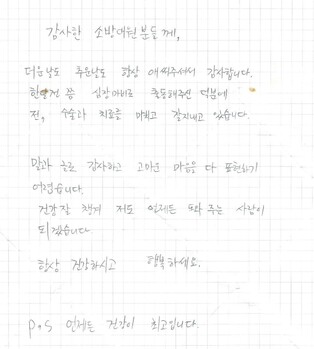 감사한 소방대원분들께,
더운날도 추운날도 항상 애써주셔서 감사합니다.
한달전 쯤 심장마비로 출동해주신 덕분에
전, 수술과 치료를 마치고 잘지내고 있습니다.
말과 글로 감사하고 고마운 마음을 다 표현하기
어렵습니다.
건강 잘 챙겨 저도 언제든 도와 주는 사람이
되겠습니다
항상 건강하시고 행복하세요.
P.S 언제든 건강이 최고입니다.